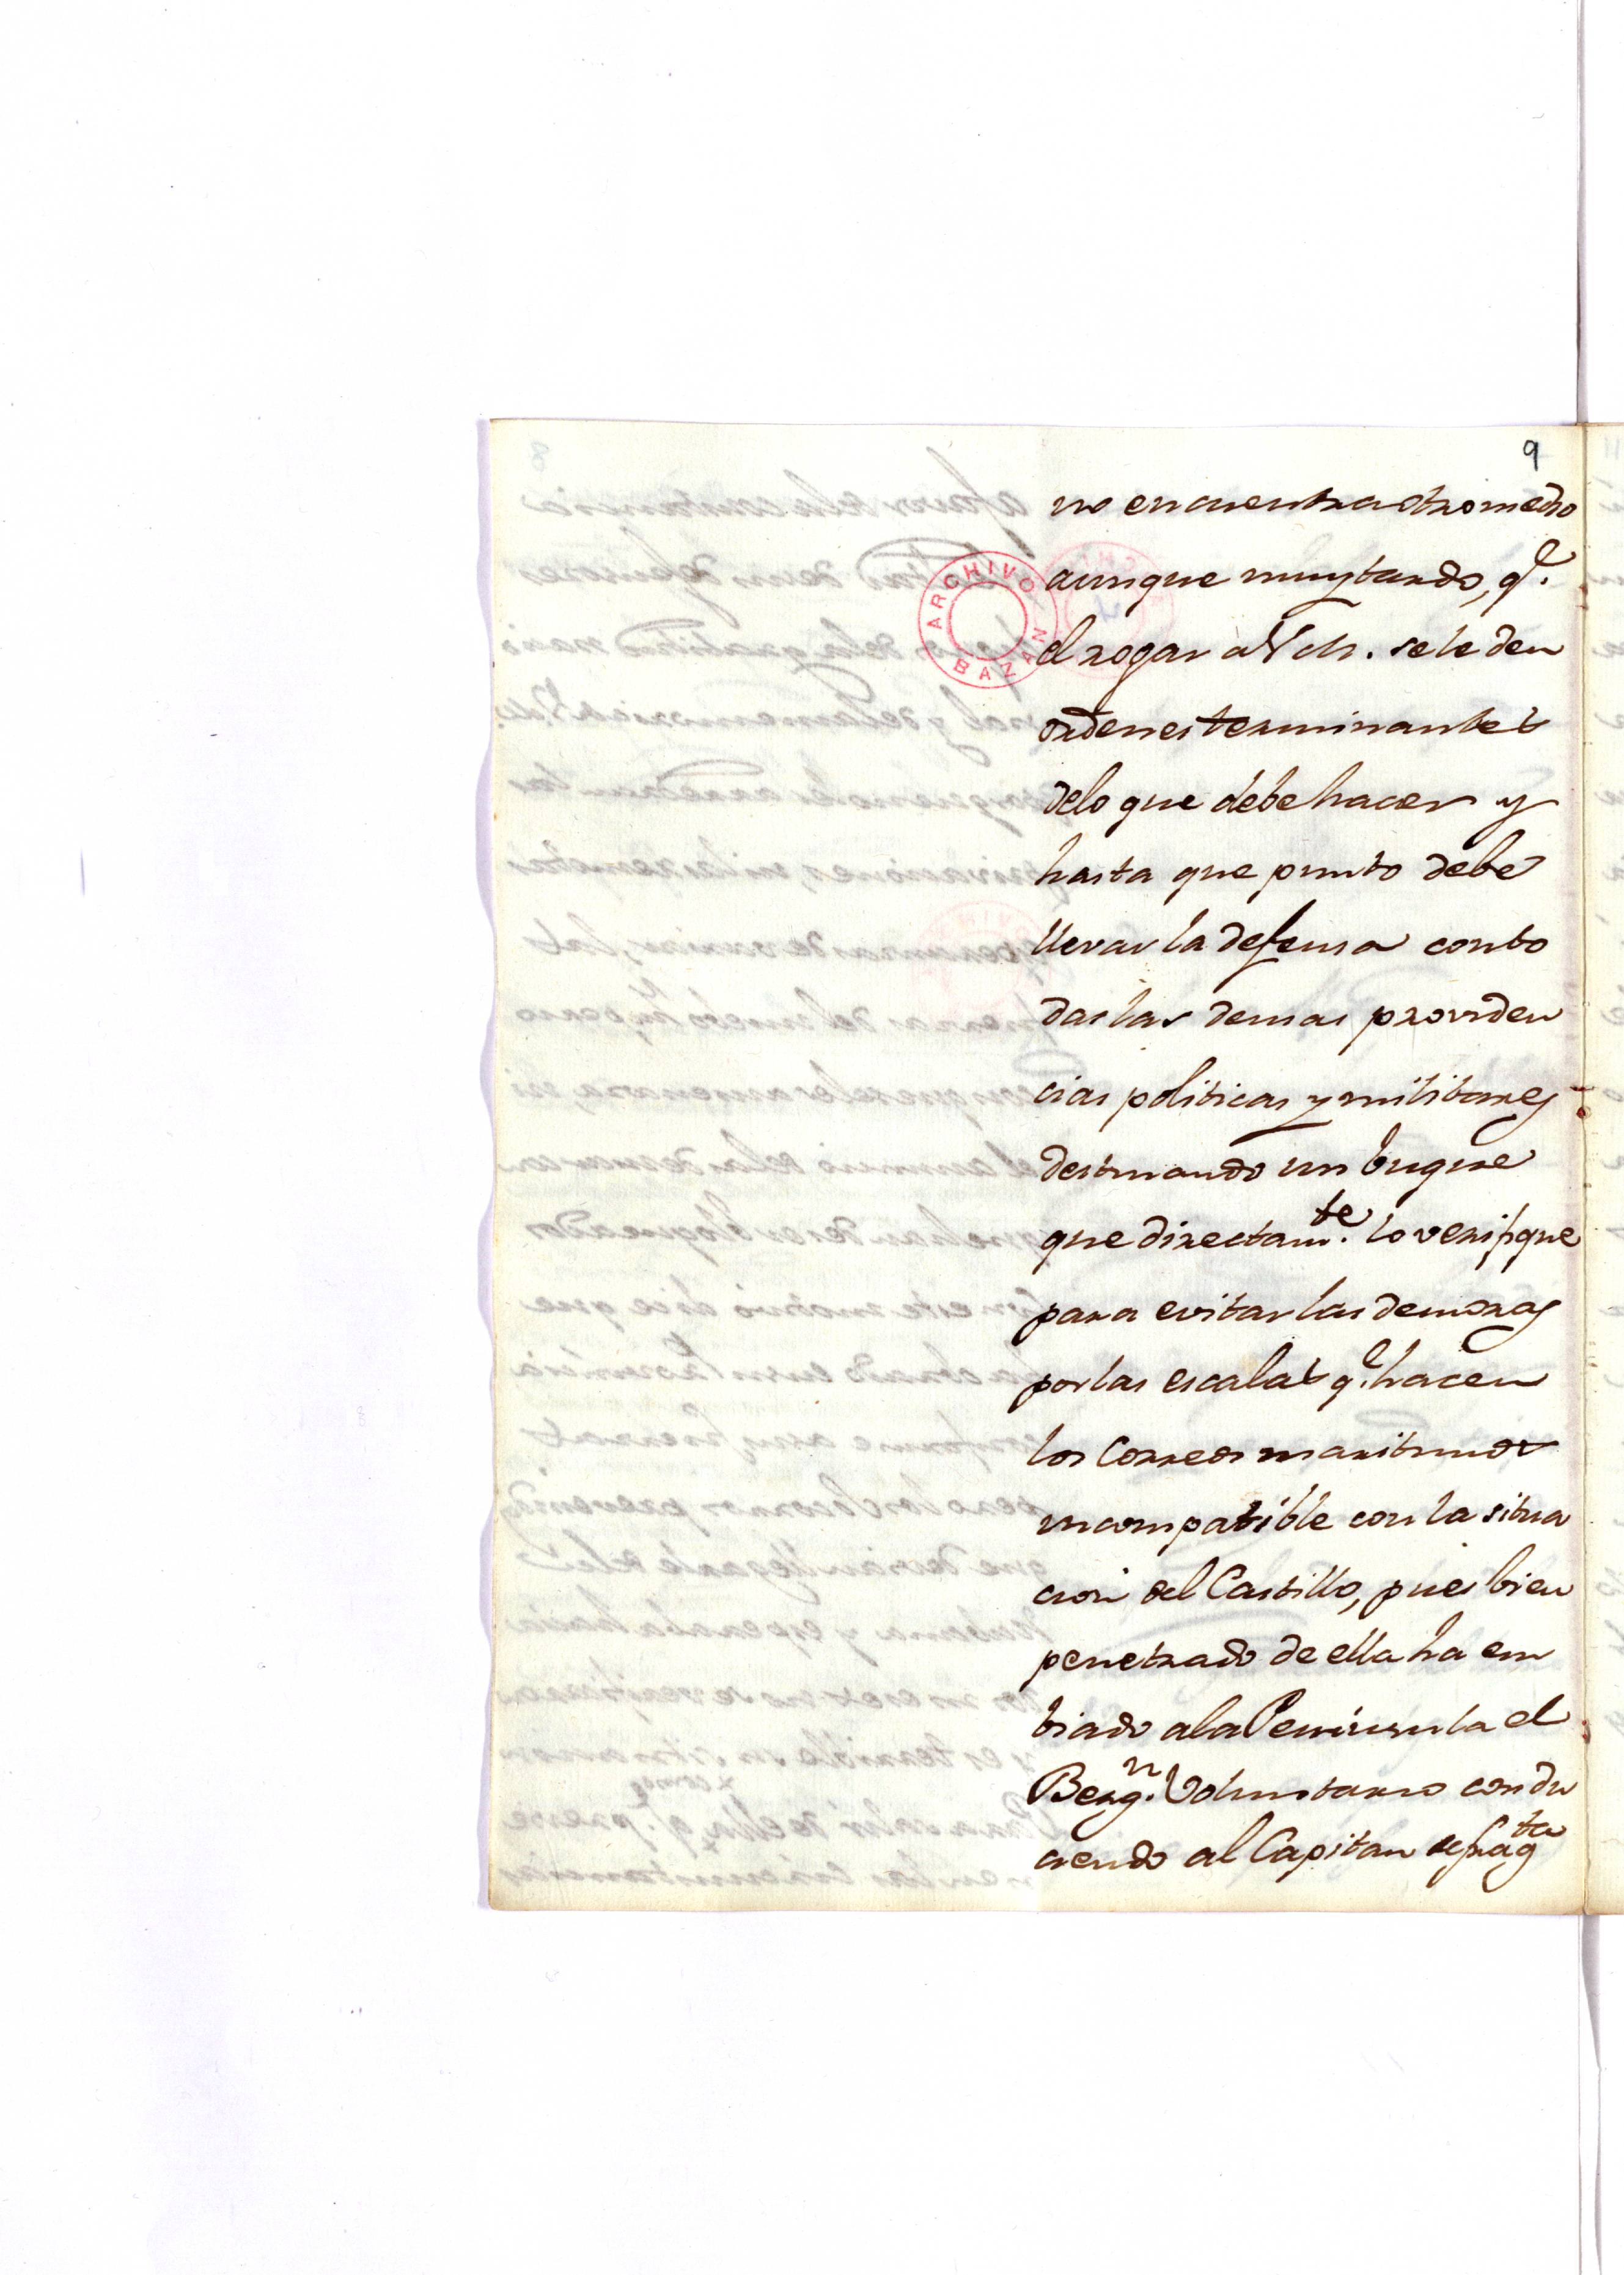 9
no encuentra otro medio
aunque muy tardo, q.e
el rogar a V.M. se le den
ordenes terminantes
de lo que debe hacer y
hasta que punto debe
llevar la defensa con to
das las demas providen
cias politicas y militares
destinando un buque
que directam.te lo verifique
para evitar las demoras
por las escalas q.e hacen
los Correos maritimos
incompatible con la situa
cion del Castillo, pues bien
penetrado de ella ha em
biado a la Peninsula el
Berg.n Voluntario condu
ciendo al Capitan de frag.ta
ARCHIVO BAZAN